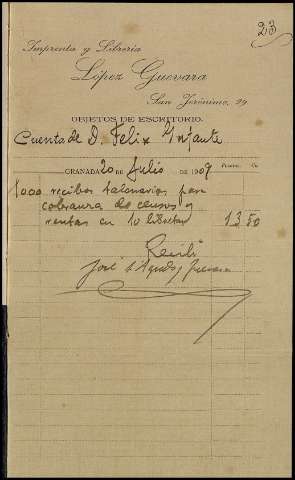 23
Imprenta y Librería
López Guevara
San Jerónimo, 29
OBJETOS DE ESCRITORIO.
Cuenta de D. Felix Infante
GRANADA 20 DE Julio DE 1909 Pesetas. Cs.
1000 recibos talonarios para
cobranza de censos y
rentas en 10 libretas 13 50
Recibí
José y Guevara